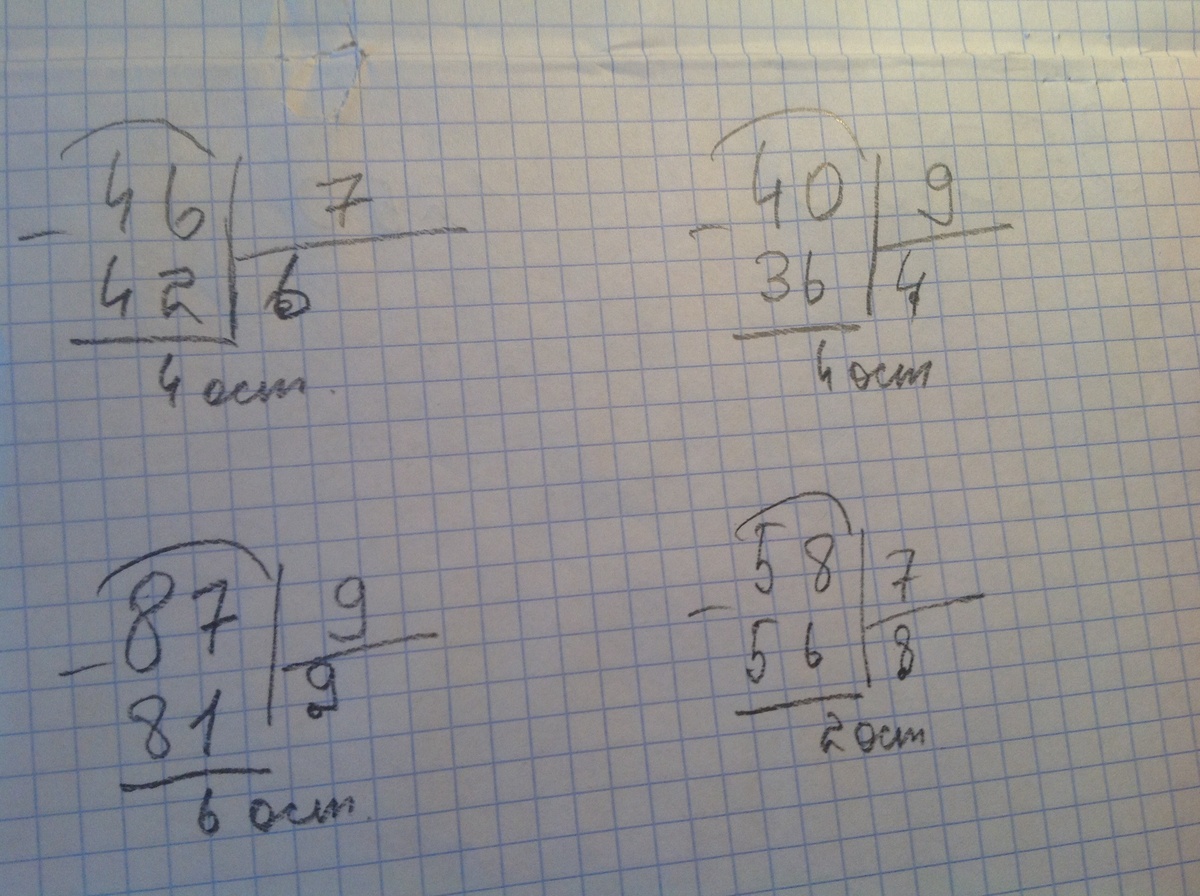 46 7
- 42 6
4 ост.
40 9
- 36 4
4 ост
87 9
- 81 9
6 ост.
58 7
- 56 8
2 ост